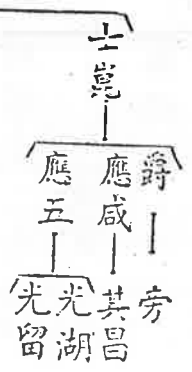 士崑
爵
應咸
應五
旁
其昌
光湖
光留